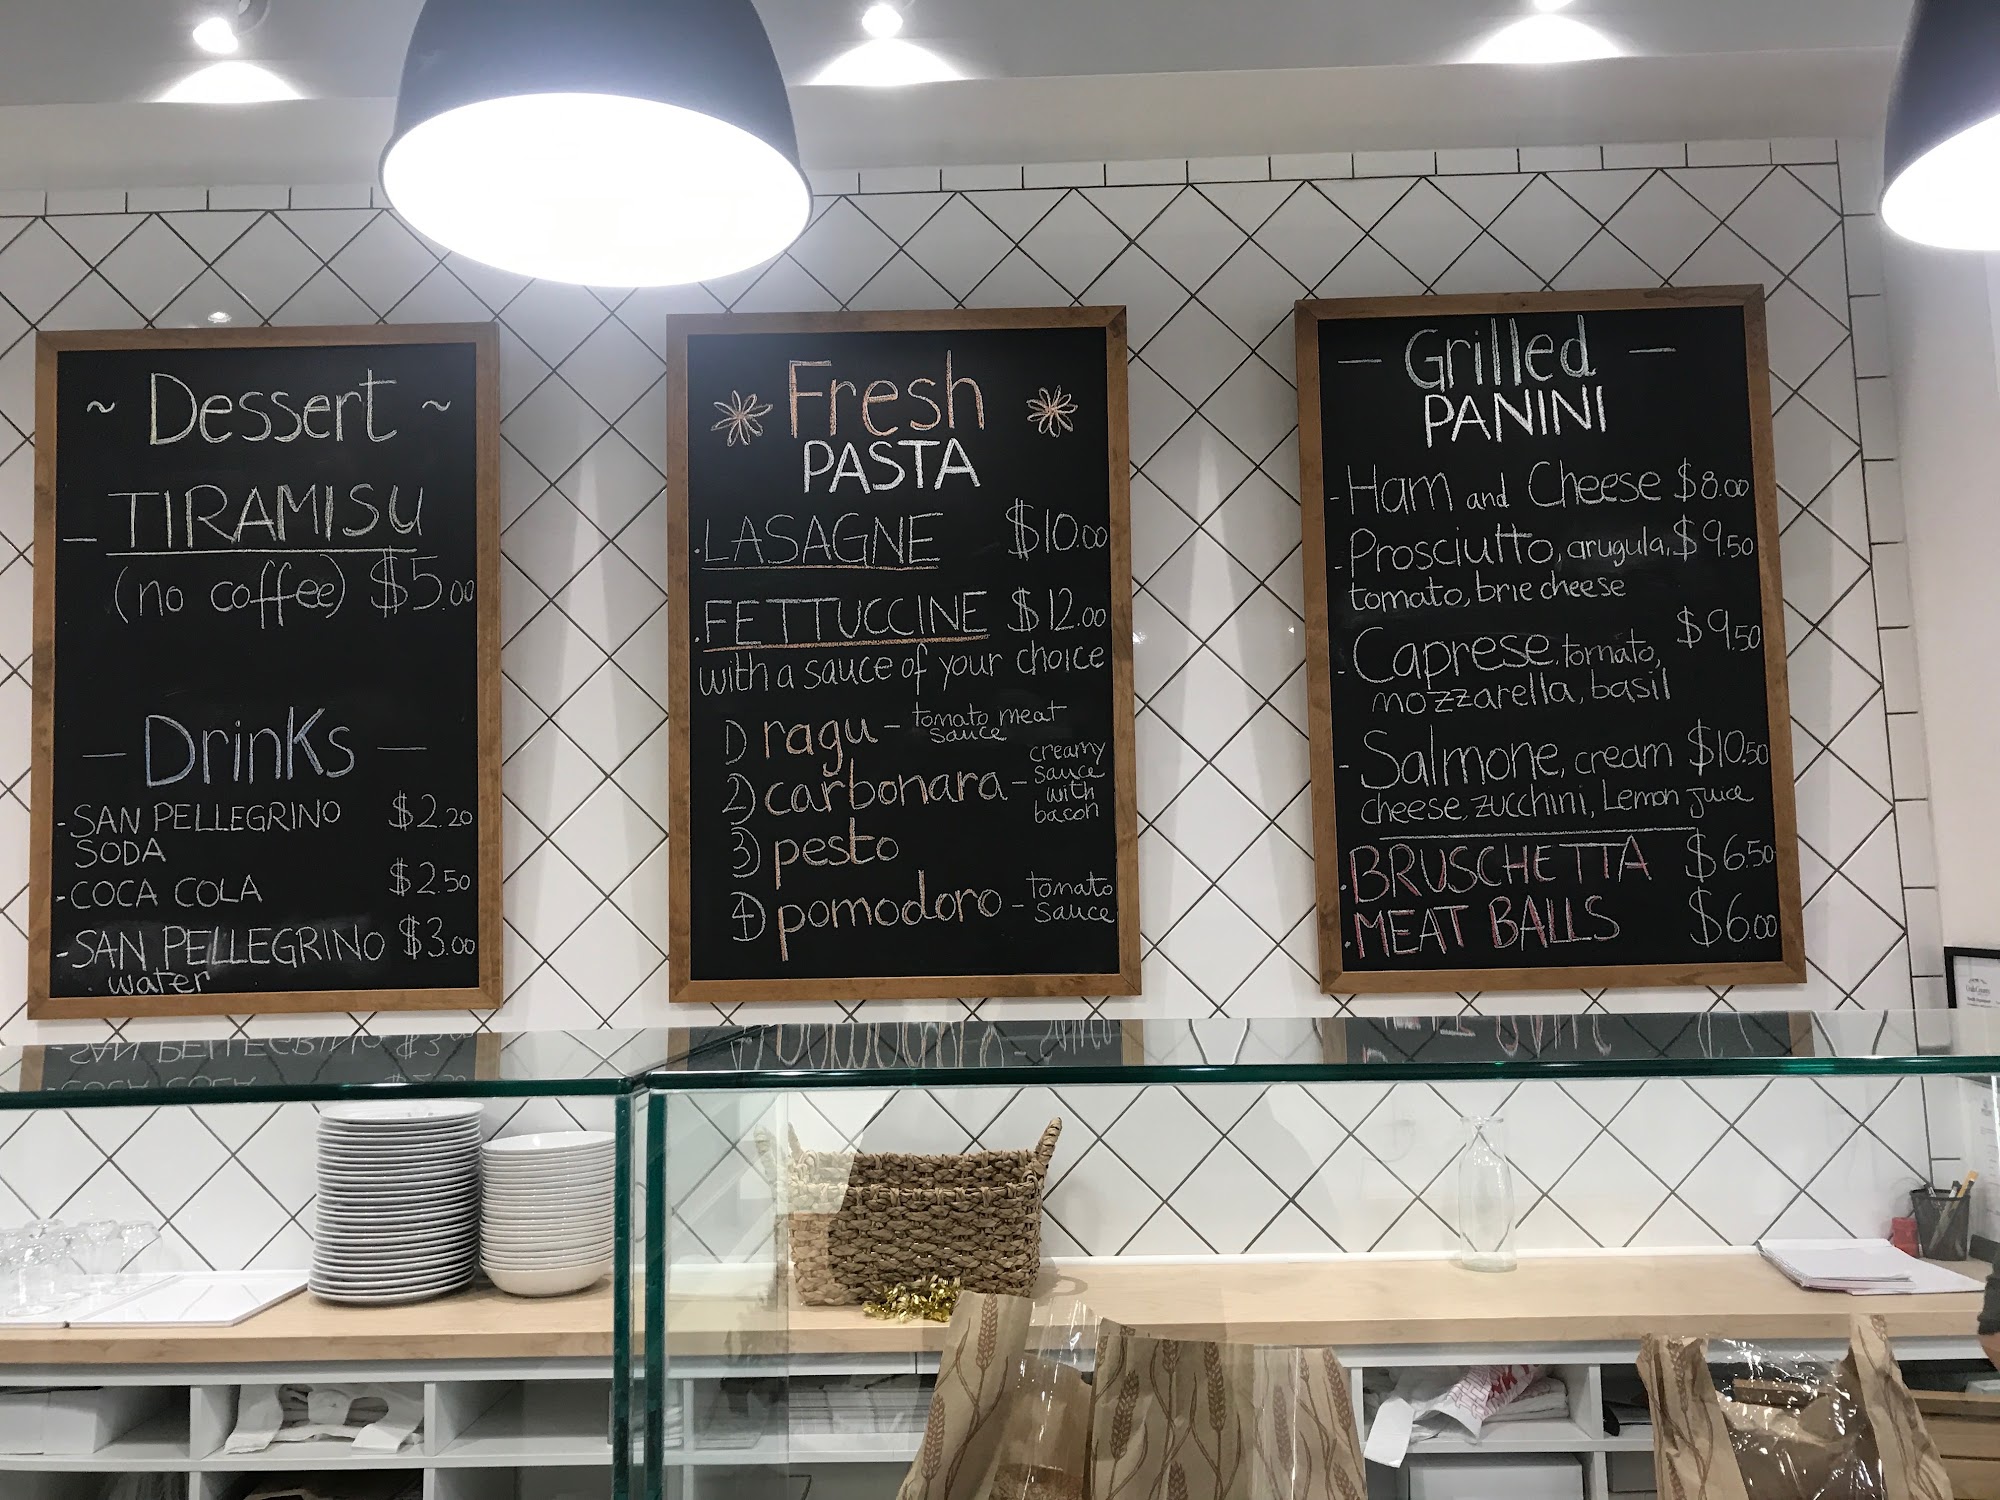 ~ Dessert ~
- TIRAMISU
(no coffee) $5.00
- Drinks -
- SAN PELLEGRINO $2.20
SODA
- COCA COLA $2.50
- SAN PELLEGRINO $3.00
water
Fresh
PASTA
. LASAGNE $10.00
. FETTUCCINE $12.00
with a sauce of your choice
1) ragu - tomato meat
sauce
2) carbonara - creamy
sauce
with
bacon
3) pesto
4) pomodoro - tomato
sauce
- Grilled -
PANINI
- Ham and Cheese $8.00
- Prosciutto, arugula, $9.50
tomato, brie cheese
- Caprese, tomato, $9.50
mozzarella, basil
- Salmone, cream $10.50
cheese, zucchini, Lemon juice
. BRUSCHETTA $6.50
. MEAT BALLS $6.00